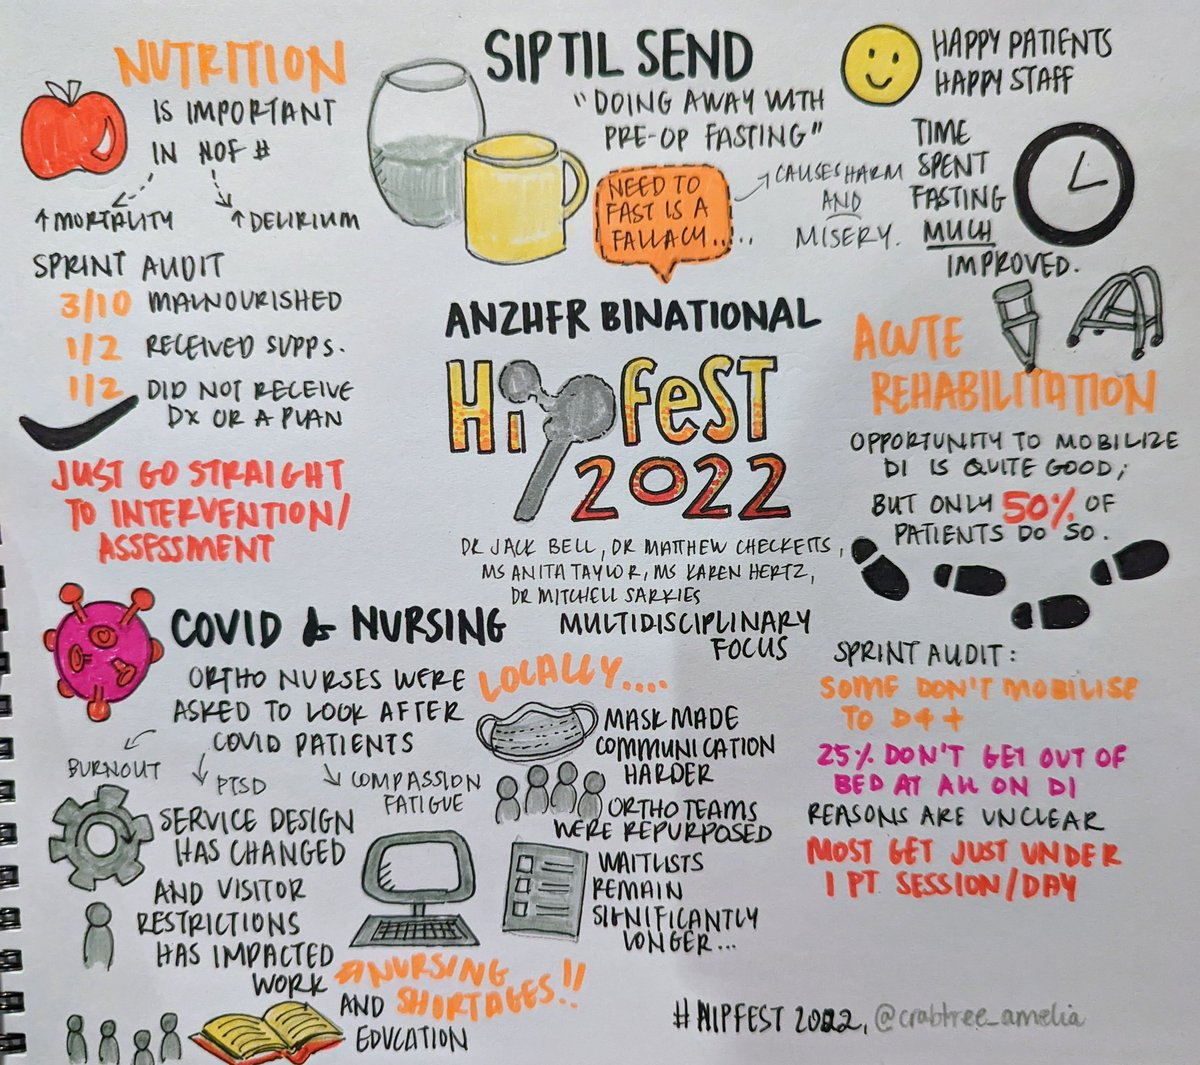 NUTRITION
IS IMPORTANT
IN NOF #
↑ MORTALITY
↑ DELIRIUM
SPRINT AUDIT
3/10 MALNOURISHED
1/2 RECEIVED SUPPS.
1/2 DID NOT RECEIVE
DX OR A PLAN
JUST GO STRAIGHT
TO INTERVENTION/
ASSESSMENT
SIPTIL SEND
"DOING AWAY WITH
PRE-OP FASTING"
NEED TO
FAST IS A
FALLACY.....
CAUSES HARM
AND
MISERY.
HAPPY PATIENTS
HAPPY STAFF
TIME
SPENT
FASTING
MUCH
IMPROVED.
ANZHFR BINATIONAL
HipfeST
2022
DR JACK BELL, DR MATTHEW CHECKETTS,
MS ANITA TAYLOR, MS KAREN HERTZ,
DR MITCHELL SARKIES
MULTIDISCIPLINARY
FOCUS
ACUTE
REHABILITATION
OPPORTUNITY TO MOBILIZE
D1 IS QUITE GOOD;
BUT ONLY 50% OF
PATIENTS DO SO.
SPRINT AUDIT:
SOME DON'T MOBILISE
TO D4+
25% DON'T GET OUT OF
BED AT ALL ON D1
REASONS ARE UNCLEAR
MOST GET JUST UNDER
1 PT SESSION/DAY
COVID & NURSING
ORTHO NURSES WERE
ASKED TO LOOK AFTER
COVID PATIENTS
BURNOUT
PTSD
COMPASSION
FATIGUE
SERVICE DESIGN
HAS CHANGED
AND VISITOR
RESTRICTIONS
HAS IMPACTED
WORK
AND
EDUCATION
NURSING
SHORTAGES!!
LOCALLY....
MASK MADE
COMMUNICATION
HARDER
ORTHO TEAMS
WERE REPURPOSED
WAITLISTS
REMAIN
SIGNIFICANTLY
LONGER...
#HIPFEST 2022, @crabtree_amelia